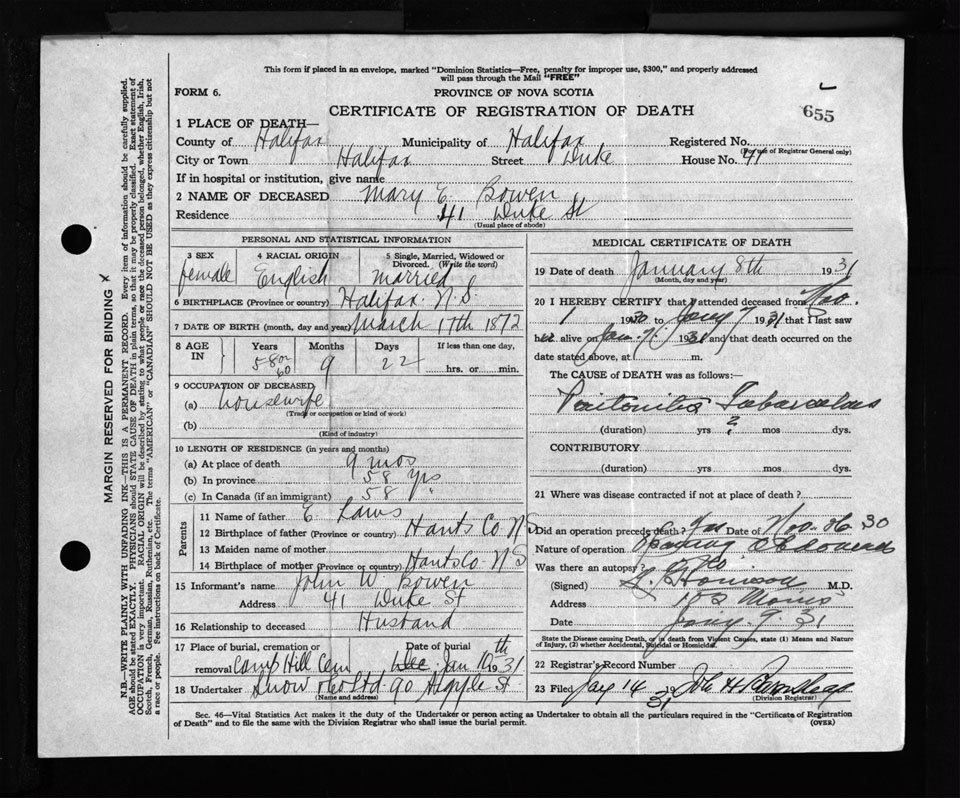 This form if placed in an envelope, marked "Dominion Statistics—Free, penalty for improper use, $300," and properly addressed
will pass through the Mail "FREE"
FORM 6.
PROVINCE OF NOVA SCOTIA
655
CERTIFICATE OF REGISTRATION OF DEATH
1 PLACE OF DEATH—
County of Halifax Municipality of Halifax Registered No.
(For use of Registrar General only)
City or Town Halifax Street Duke House No. 41
If in hospital or institution, give name
2 NAME OF DECEASED Mary E. Bowen
Residence 41 Duke St
(Usual place of abode)
PERSONAL AND STATISTICAL INFORMATION
3 SEX 4 RACIAL ORIGIN 5 Single, Married, Widowed or Divorced. (Write the word)
female English married
6 BIRTHPLACE (Province or country) Halifax N.S.
7 DATE OF BIRTH (month, day and year) March 17th 1872
8 AGE IN Years Months Days If less than one day,
58 or 60 9 22 hrs. or min.
9 OCCUPATION OF DECEASED
(a) housewife
(Trade or occupation or kind of work)
(b)
(Kind of industry)
10 LENGTH OF RESIDENCE (in years and months)
(a) At place of death 9 mos
(b) In province 58 yrs
(c) In Canada (if an immigrant) 58 "
Parents
11 Name of father E. Laws
12 Birthplace of father (Province or country) Hants Co NS
13 Maiden name of mother
14 Birthplace of mother (Province or country) Hants Co NS
15 Informant's name John W Bowen
Address 41 Duke St
16 Relationship to deceased Husband
17 Place of burial, cremation or removal Camp Hill Cem Date of burial Dec Jan 10th 1931
18 Undertaker Snow & Co Ltd 90 Argyle St
(Name and address)
MEDICAL CERTIFICATE OF DEATH
19 Date of death January 8th 1931
(Month, day and year)
20 I HEREBY CERTIFY that I attended deceased from Nov.
1 1930 to Jany 7 1931 that I last saw
her alive on Jan 7 1931 and that death occurred on the
date stated above, at m.
The CAUSE of DEATH was as follows:—
Peritonitis Tubercular
(duration) yrs ? mos dys.
CONTRIBUTORY
(duration) yrs mos dys.
21 Where was disease contracted if not at place of death?
Did an operation precede death? Yes Date of Nov. 26 30
Nature of operation
Was there an autopsy? No
(Signed) M.D.
Address 152 Morris
Date Jany. 9. 31
State the Disease causing Death, or in death from Violent Causes, state (1) Means and Nature
of Injury, (2) whether Accidental, Suicidal or Homicidal.
22 Registrar's Record Number
23 Filed Jany 14 1931
(Division Registrar)
Sec. 46—Vital Statistics Act makes it the duty of the Undertaker or person acting as Undertaker to obtain all the particulars required in the "Certificate of Registration
of Death" and to file the same with the Division Registrar who shall issue the burial permit.
(OVER)
MARGIN RESERVED FOR BINDING
N.B.—WRITE PLAINLY WITH UNFADING INK—THIS IS A PERMANENT RECORD. Every item of information should be carefully supplied.
AGE should be stated EXACTLY. PHYSICIANS should STATE CAUSE OF DEATH in plain terms, so that it may be properly classified. Exact statement of
OCCUPATION is very important. RACIAL ORIGIN will be described by stating to what people or race the deceased person belonged, whether English, Irish,
Scotch, French, German, Russian, Ruthenian, etc. The terms "AMERICAN" or "CANADIAN" SHOULD NOT BE USED as they express citizenship but not
a race or people. See instructions on back of Certificate.